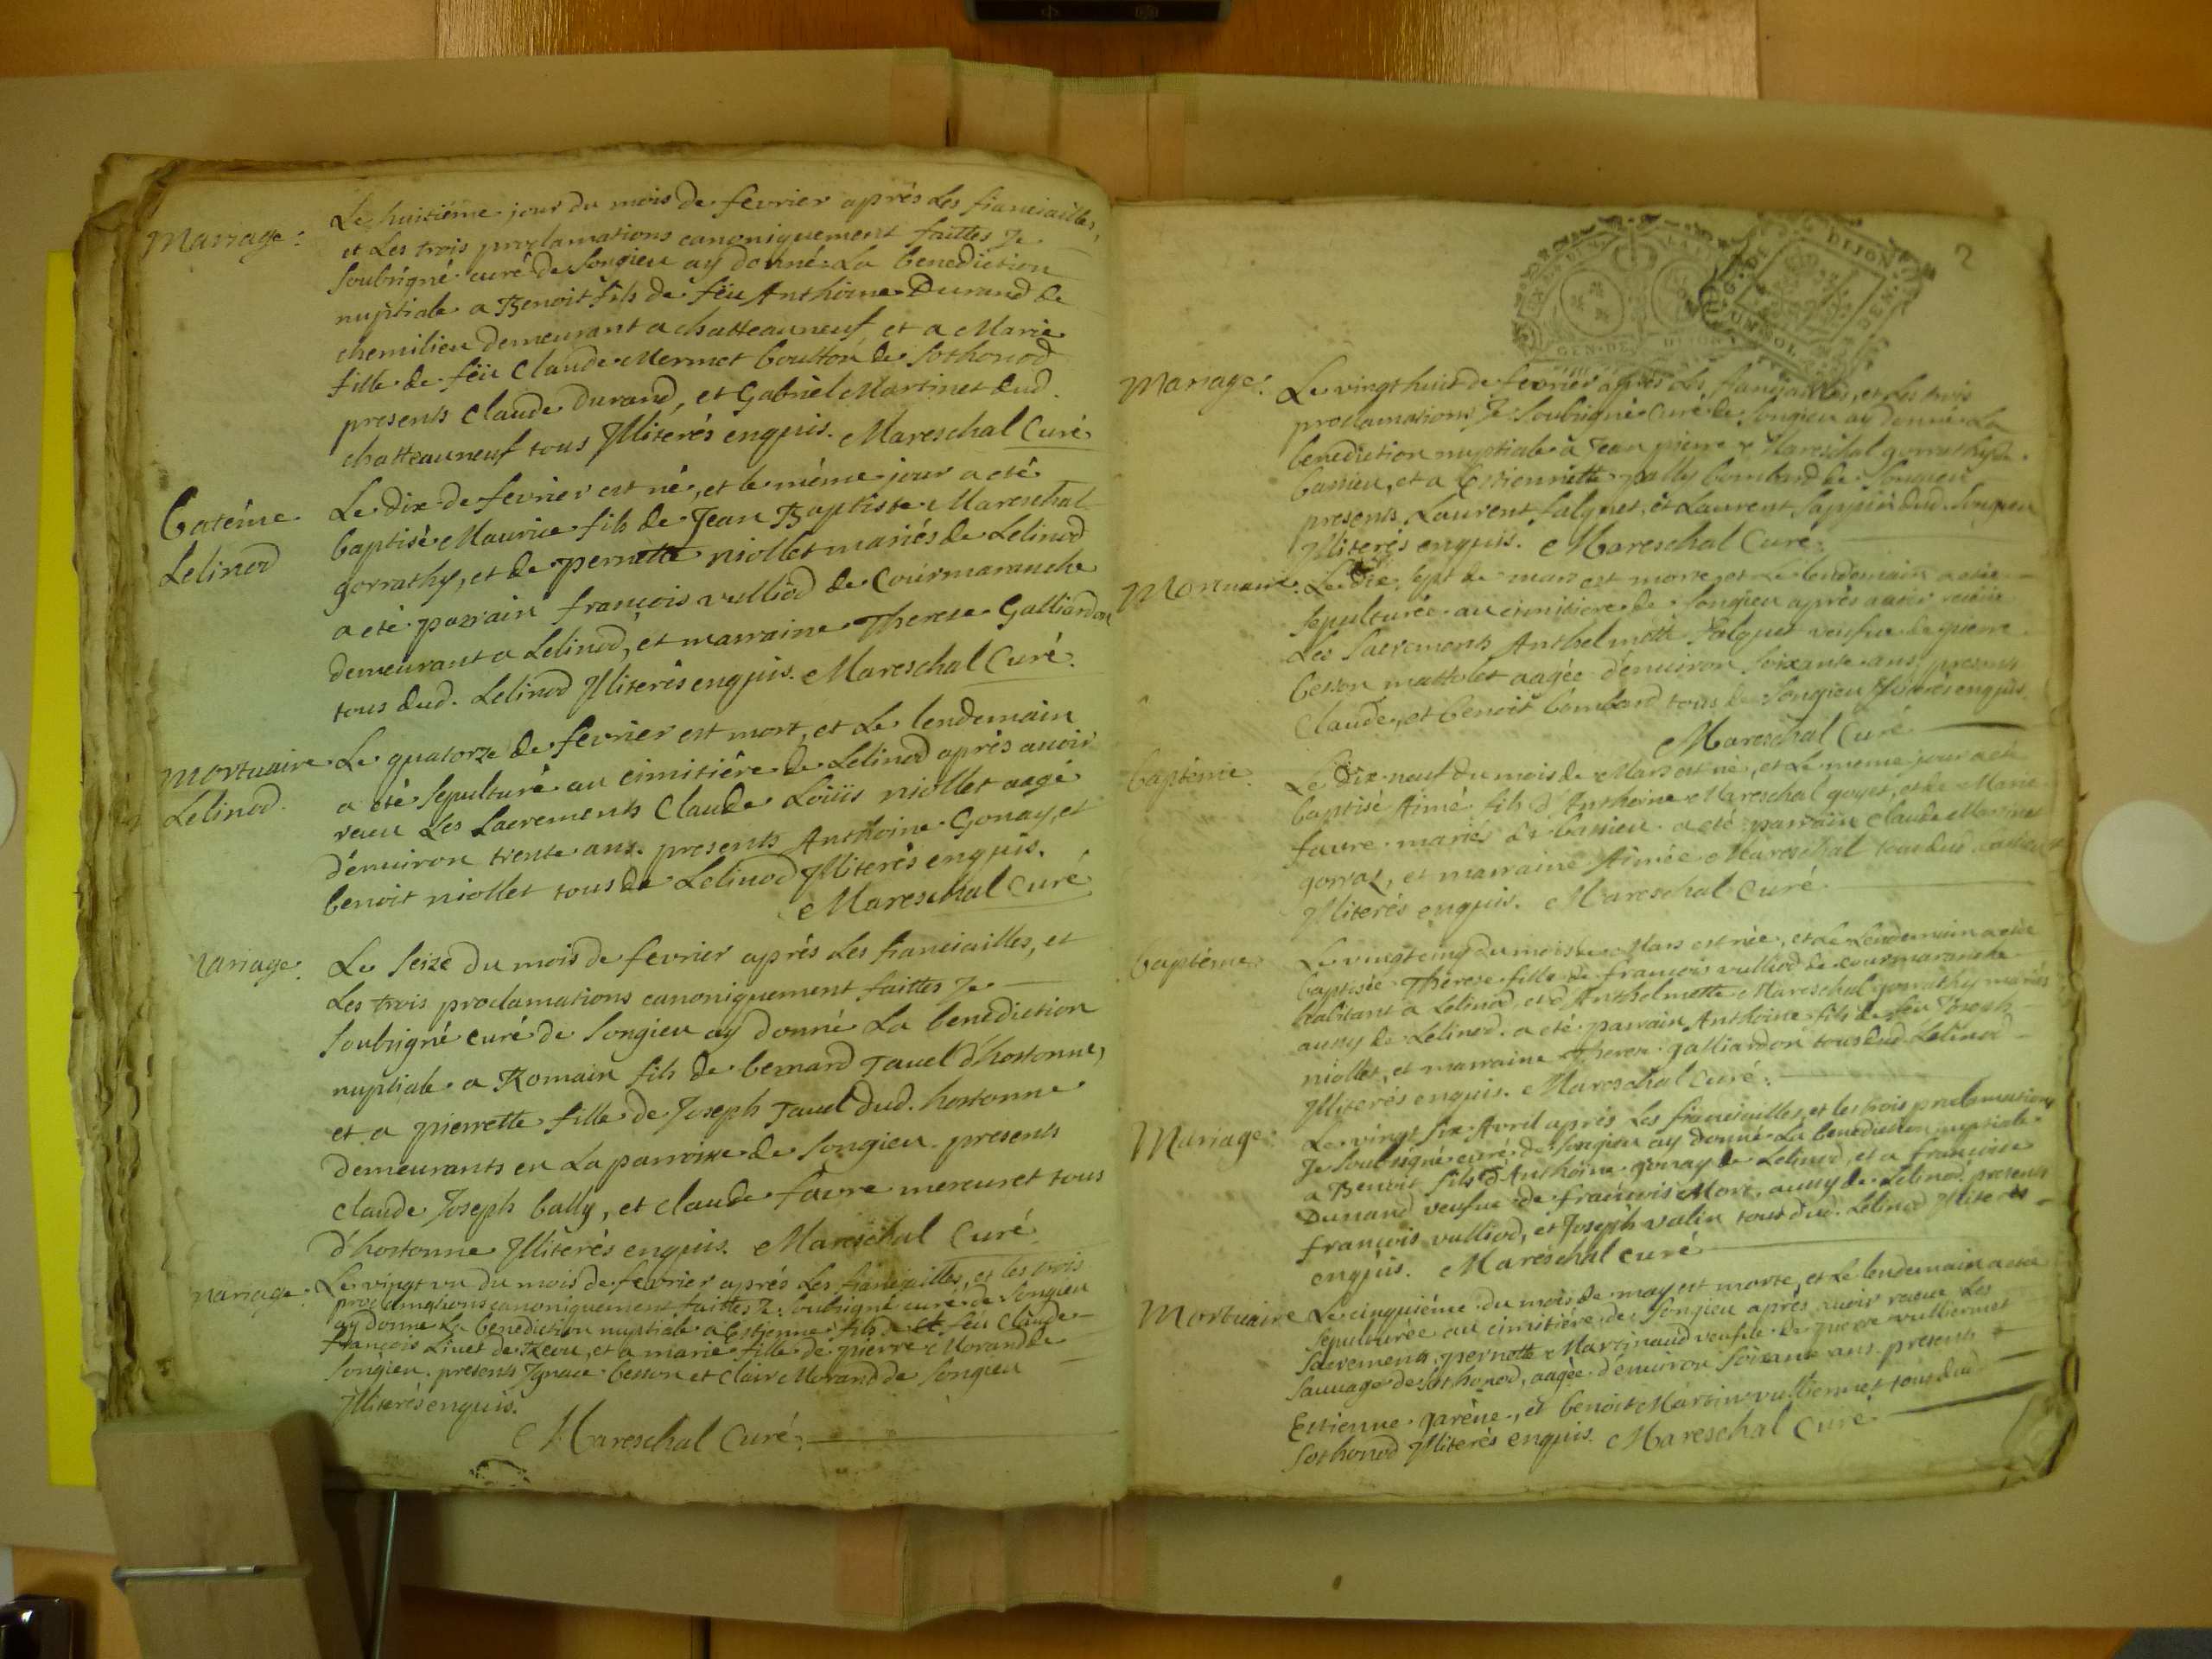 Mariage.
Le huitiéme jour du mois de fevrier aprés Les fianciailles,
et Les trois proclamations canoniquement faittes Je
soubsigné curé de Songieu ay donné La benediction
nuptiale a Benoit fils de feu Anthoine Durand de
chemilieu demeurant a chatteauneuf et a Marie
fille de feu Claude Mermet boutton de Sothonod
presents Claude Durand, et Gabriel Martinet dud.
chatteauneuf tous Jlliterés enquis. Mareschal Curé
batéme
Lelinod
Le dix de fevrier est né, et le même jour a eté
baptisé Maurice fils de Jean Baptiste Mareschal
gorrathy, et de pernette niollet mariés de Lelinod
a eté parrain françois vulliod de Courmaranche
demeurant a Lelinod, et marraine Therese Galliardon
tous dud. Lelinod Jlliterés enquis. Mareschal Curé.
Mortuaire
Lelinod.
Le quatorze de fevrier est mort, et Le lendemain
a eté sepulturé au cimitiére de Lelinod aprés avoir
receu Les Sacrements Claude Loüis niollet aagé
d'environ trente ans. presents Anthoine Gonay, et
benoit niollet tous de Lelinod Jlliterés enquis.
Mareschal Curé
Mariage.
Le seize du mois de fevrier aprés Les fianciailles, et
Les trois proclamations canoniquement faittes Je
soubsigné curé de Songieu ay donné La benediction
nuptiale a Romain fils de bernard Tavel d'hostonne,
et a pierrette fille de Joseph Tavel dud. hostonne
demeurants en La parroisse de Songieu presents
Claude Joseph bally, et Claude favre mercuret tous
d'hostonne Jlliterés enquis. Mareschal Curé
Mariage.
Le vingt un du mois de fevrier aprés Les fianciailles, et les trois
proclamations canoniquement faittes Je soubsigné curé de Songieu
ay donné La benediction nuptiale a Estienne fils de feu Claude
françois Livet de, et a marie fille de pierre Morand de
Songieu. presents Jgnace besson et Clair Morand de Songieu
Jlliterés enquis.
Mareschal Curé.
2
GEN. DE DIJON
Mariage.
Le vingt huit de fevrier aprés Les fianciailles, et Les trois
proclamations Je soubsigné Curé de Songieu ay donné La
benediction nuptiale a Jean pierre Mareschal gorrathy de
bassieu, et a Estiennette bally bombard de Songieu
presents Laurent falquet, et Laurent dud. Songieu
Jlliterés enquis. Mareschal Curé.
Mortuaire.
Le dix sept de mars est morte, et Le lendemain a eté
sepulturée au cimitiere de Songieu aprés avoir receu
Les Sacrements Anthelmette falquet veufve de pierre
besson mattolet aagée d'environ soixante ans, presents
Claude, et benoit bombard tous de Songieu Jlliterés enquis
Mareschal Curé
baptéme
Le Dix neuf du mois de Mars est né, et Le meme jour a eté
baptisé Aimé fils d'Anthoine Mareschal goyet, et de Marie
favre mariés de bassieu a eté parrain Claude Martinet
gorraz, et marraine Aimée Mareschal tous dud. bassieu
Jlliterés enquis. Mareschal Curé
baptéme
Le vingt cinq du mois de Mars est née, et Le Lendemain a eté
baptisée Therese fille de françois vulliod de courmaranche
habitant a Lelinod, et d'Anthelmette Mareschal gorrathy mariés
aussy de Lelinod. a eté parrain Anthoine fils de feu Joseph
niollet, et marraine Therese galliardon tous dud. Lelinod
Jlliterés enquis. Mareschal Curé.
Mariage.
Le vingt six Avril aprés Les fianciailles, et les trois proclamations
Je soubsigné curé de Songieu ay donné La benediction nuptiale
a Benoit fils d'Anthoine gonay de Lelinod, et a françoise
Dunand veufve de françois More, aussy de Lelinod. presents
françois vulliod, et Joseph valin tous dud. Lelinod Jlliterés
enquis. Mareschal curé
Mortuaire
Le cinquiéme du mois de may est morte, et Le lendemain a eté
sepulturée au cimitiére de Songieu aprés avoir receu Les
Sacrements pernette Martinaud veufve de pierre vulliermet
sauvage de Sothonod, aagée d'environ soixante ans. presents
Estienne garéne, et benoit Martin vulliermet tous dud.
Sothonod Jlliterés enquis. Mareschal Curé